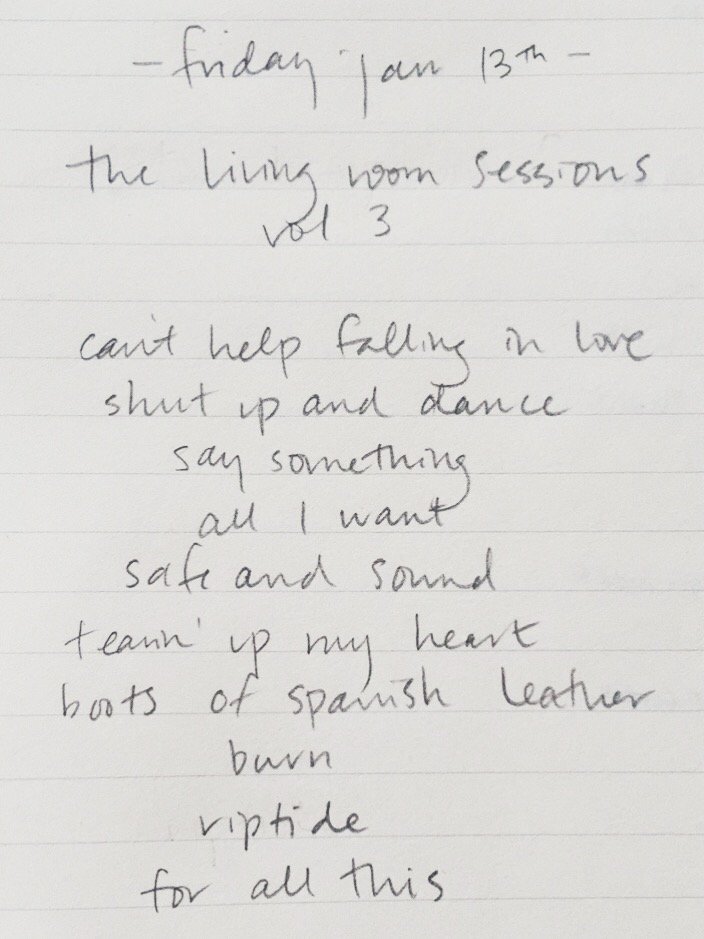 - friday jan 13th -
the living room sessions
vol 3
can't help falling in love
shut up and dance
say something
all I want
safe and sound
tearin' up my heart
boots of spanish leather
burn
riptide
for all this